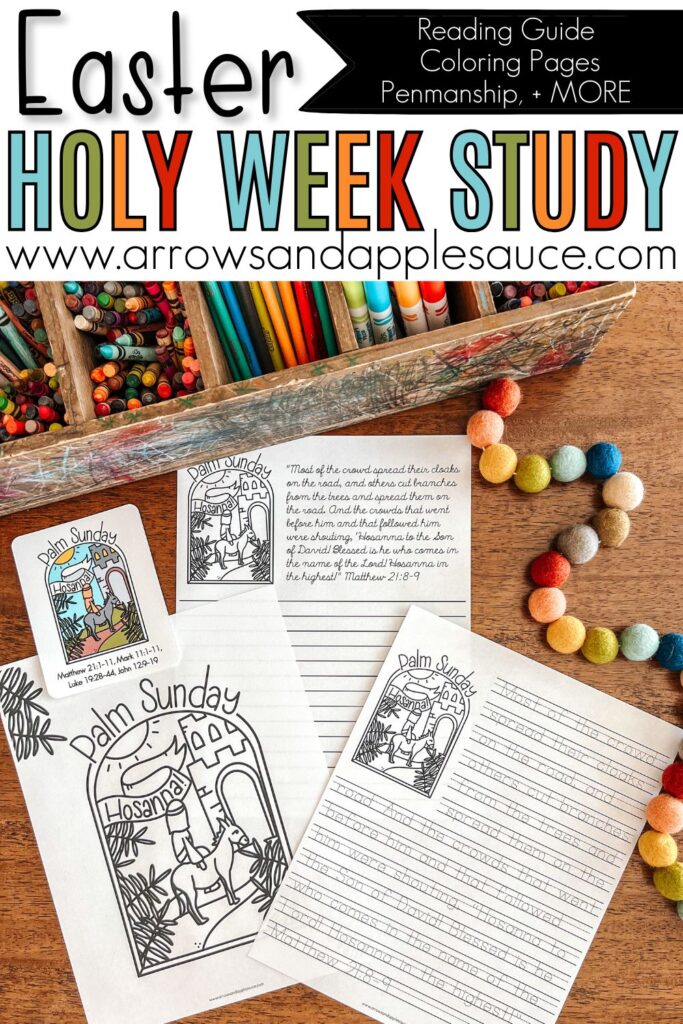 Easter
Reading Guide
Coloring Pages
Penmanship, + MORE
HOLY WEEK STUDY
www.arrowsandapplesauce.com
Palm Sunday
Hosanna!
"Most of the crowd spread their cloaks
on the road, and others cut branches
from the trees and spread them on
the road. And the crowds that went
before him and that followed him
were shouting, "Hosanna to the Son
of David! Blessed is he who comes in
the name of the Lord! Hosanna in
the highest!" Matthew 21:8-9
Palm Sunday
Hosanna!
Matthew 21:1-11, Mark 11:1-11,
Luke 19:28-44, John 12:9-19
Palm Sunday
Hosanna!
www.arrowsandapplesauce.com
Palm Sunday
Hosanna!
Most of the crowd
spread their cloaks
on the road, and
others cut branches
from the trees and
spread them on the
road. And the crowds that went
before him and that followed
him were shouting, "Hosanna to
the Son of David! Blessed is he
who comes in the name of the
Lord! Hosanna in the highest!"
Matthew 21:8-9